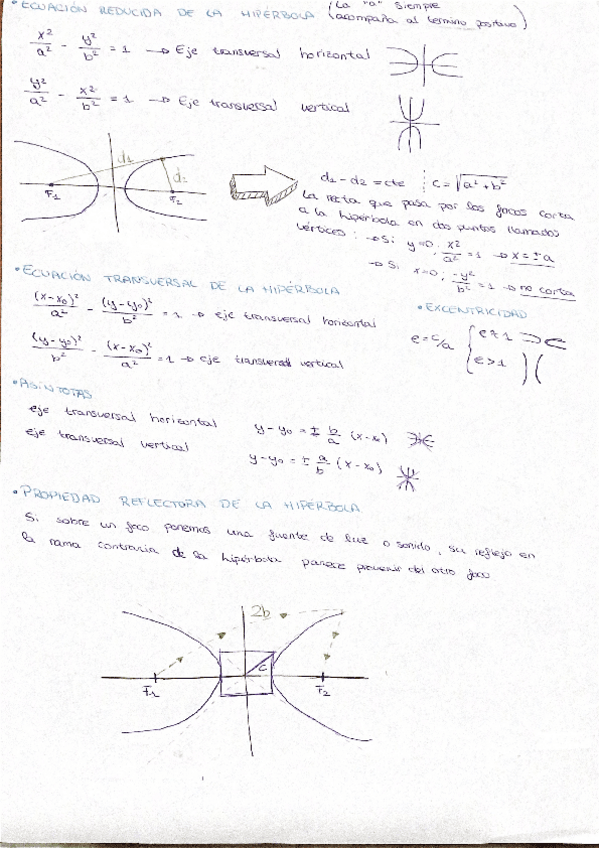 • ECUACIÓN REDUCIDA DE LA HIPÉRBOLA (La "a" siempre acompaña al termino positivo)
x²/a² - y²/b² = 1 → Eje transversal horizontal
y²/a² - x²/b² = 1 → Eje transversal vertical
d1
d2
F1
F2
d1 - d2 = cte
c = √(a² + b²)
La recta que pasa por los focos corta
a la hipérbola en dos puntos llamados
vértices: → Si y=0, x²/a² = 1 → x = ±a
→ Si x=0, -y²/b² = 1 → no corta
• ECUACIÓN TRANSVERSAL DE LA HIPÉRBOLA
(x-x0)²/a² - (y-y0)²/b² = 1 → eje transversal horizontal
(y-y0)²/b² - (x-x0)²/a² = 1 → eje transversal vertical
• EXCENTRICIDAD
e = c/a
e > 1
• ASÍNTOTAS
eje transversal horizontal y-y0 = ± b/a (x-x0)
eje transversal vertical y-y0 = ± a/b (x-x0)
• PROPIEDAD REFLECTORA DE LA HIPÉRBOLA
Si sobre un foco ponemos una fuente de luz o sonido, su reflejo en
la rama contraria de la hipérbola parece provenir del otro foco
2b
c
F1
F2